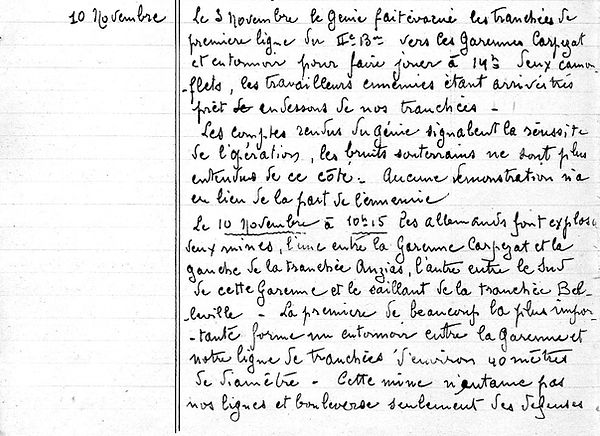 10 Novembre
Le 3 Novembre le Génie fait évacué les tranchées de
première ligne du IIe Bon vers les Garennes Carpezat
et entonnoir pour faire jouer à 14h deux camou-
-flets, les travailleurs ennemies étant arrivés très
prêt de en dessous de nos tranchées -
Les comptes rendus du génie signalent la réussite
de l'opération, les bruits souterrains ne sont plus
entendus de ce côté - Aucune démonstration n'a
eu lieu de la part de l'ennemie
Le 10 Novembre à 10h15 les allemands font explos
deux mines, l'une entre la Garenne Carpezat et la
gauche de la tranchée Anzias, l'autre entre le Sud
de cette Garenne et le saillant de la tranchée Bel-
-leville - La première de beaucoup la plus impor-
-tante forme un entonnoir entre la Garenne et
notre ligne de tranchées d'environ 40 mètres
de diamètre - Cette mine n'entame pas
nos lignes et bouleverse seulement des défenses